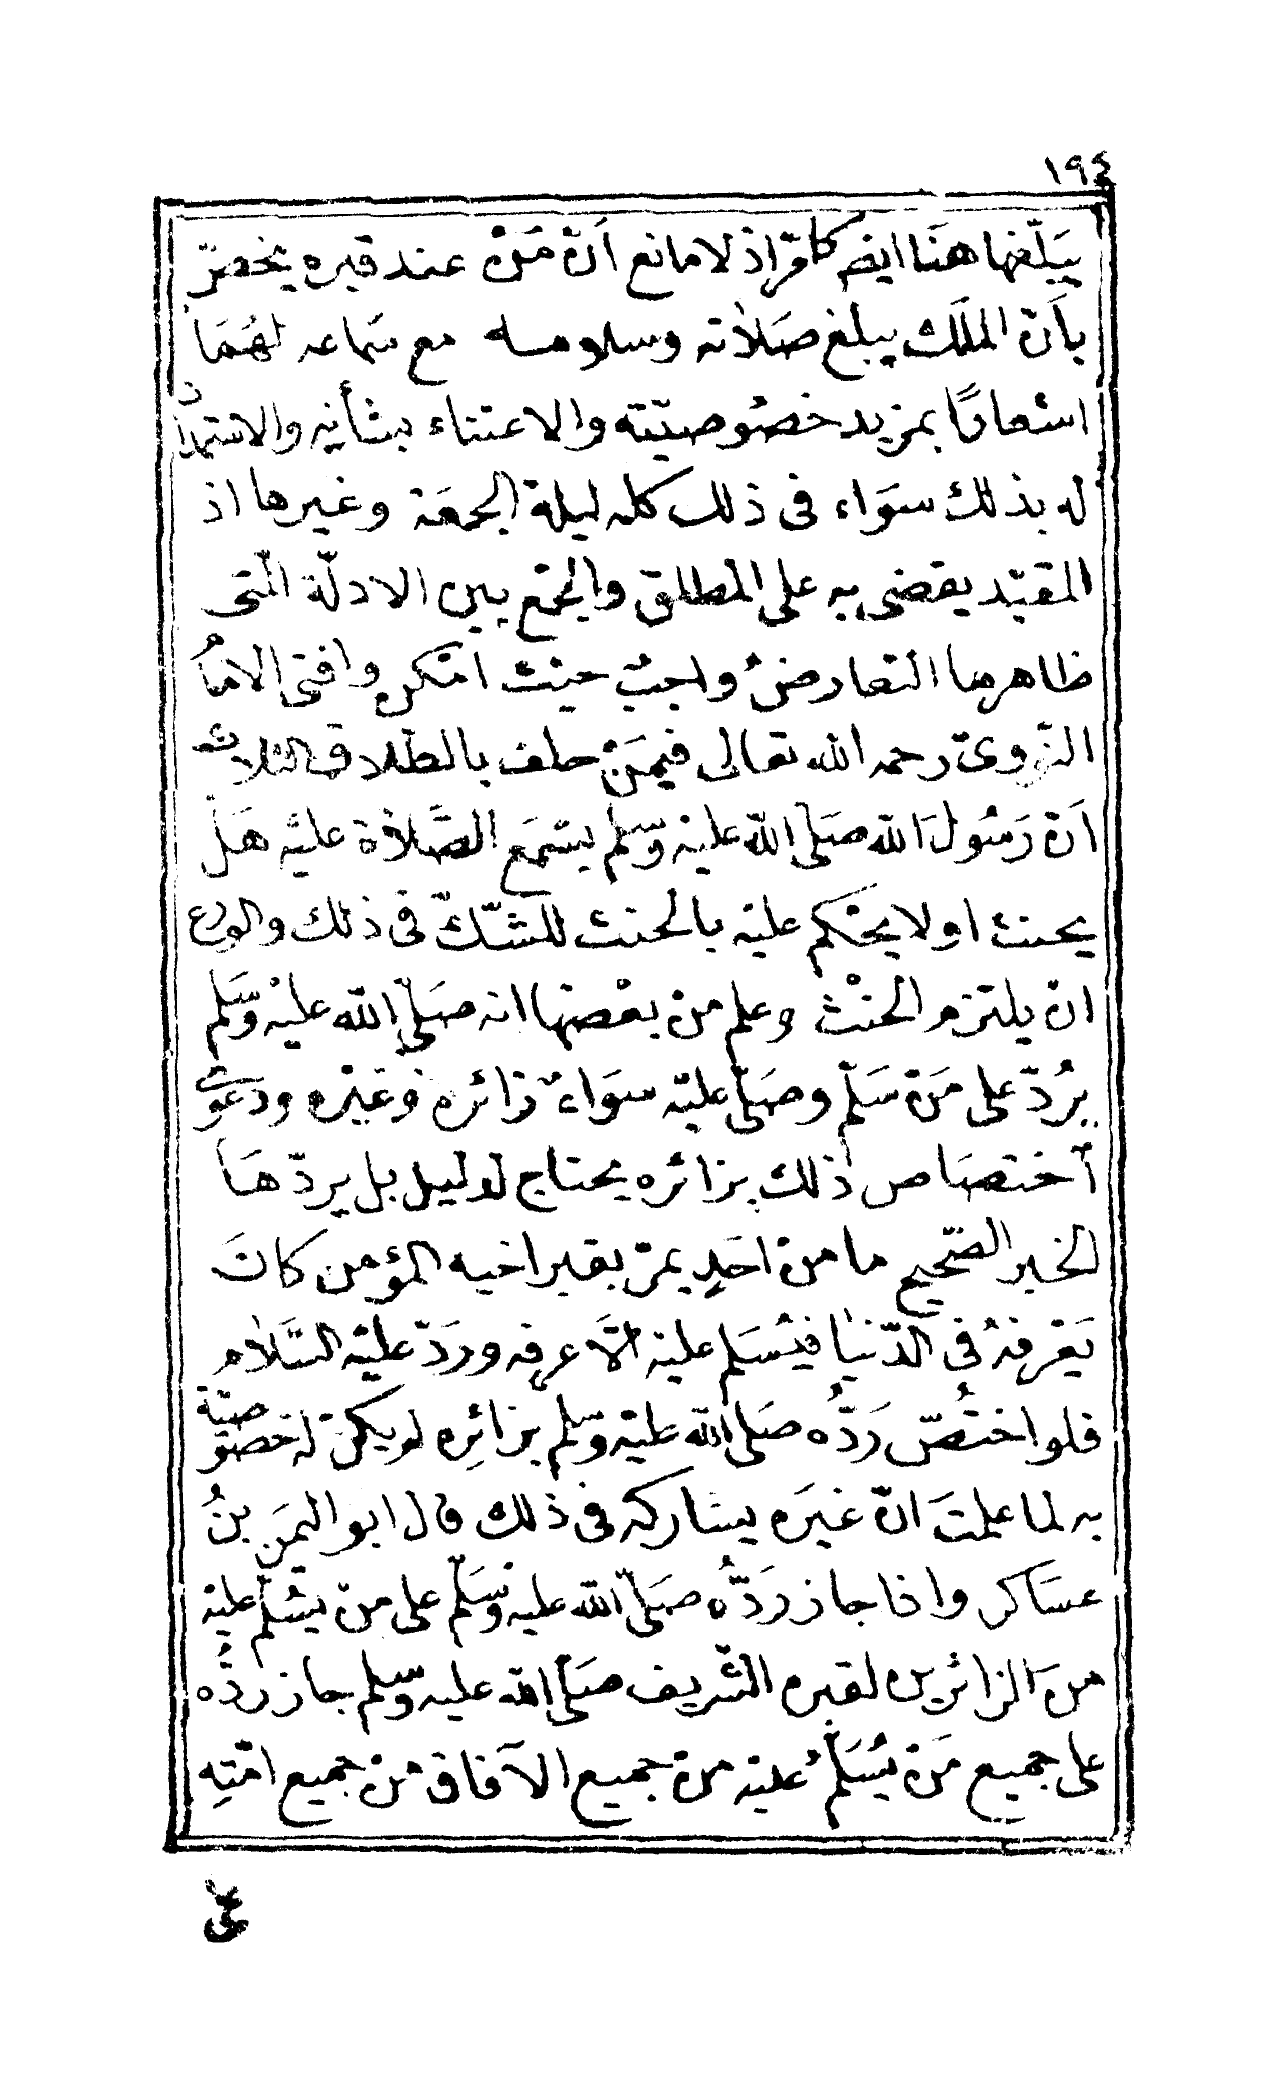 ١٩٤
يبَلّغها هنَا ايضم كامرّ اذ لا مانع اَنّ مَنْ عند قبره يخصّ
بأَنّ الملَك يبلغ صَلاٰته وسلامه مع سَماعه لهُمَا
اشعارًا بمزيد خصُوصيّته والاعتناء بشأنِه والاستمداد
له بذلك سوَاء فى ذلك كله ليلة الجمعَة وغيرها اذ
المقيّد يقضى به على المطلق والجمْع بين الادلّة التى
ظاهرها التعارضُ واجبٌ حيْث امْكن وافتى الامامُ
النّووىّ رحمه الله تعالى فيمَنْ حلف بالطّلاق الثلاث
اَنّ رَسُولَ الله صَلى الله عليْه وسّلم يسْمَع الصَّلاٰة عليْه هَلْ
يحنث او لا يحْكم عليْه بالحنث للشّكّ فى ذلك والورع
انْ يلتزم الحنْث وعلم منْ بعْضها انه صَلّى الله عليْه وسَّلم
يرُدّ على مَنْ سَلّم وصَلّى عليْه سوَاءٌ زائره وغيْره ودعوٰى
اَختصَاص ذٰلك بزائره يحتاج لدليل بل يردّ هَا
الخبر الصّحيح ما منْ احَدٍ يمرّ بقبر اخيه المؤمن كانَ
يَعْرفهُ فى الدّنيٰا فيُسَلم عليْه الَّا عرفه وردَّ عليْه السّلاٰم
فلو اختُصّ رَدُّه صَلى الله عليْه وسّلم بزائِره لم يكنْ له خصُوصيّة
به لما علمتَ انّ غيَره يشاركه فى ذلك قال ابو اليمَن بنُ
عسَاكر واذا جاز رَدُّه صَلّى الله عليه وسَّلم على منْ يسُلّم عليْه
منَ الزائرين لقبره الشّريف صَلّى الله عليه وسّلم جاز ردُّه
على جميع مَنْ يُسَلّمُ عليْه منْ جميع الآفاق منْ جميع امّتِه